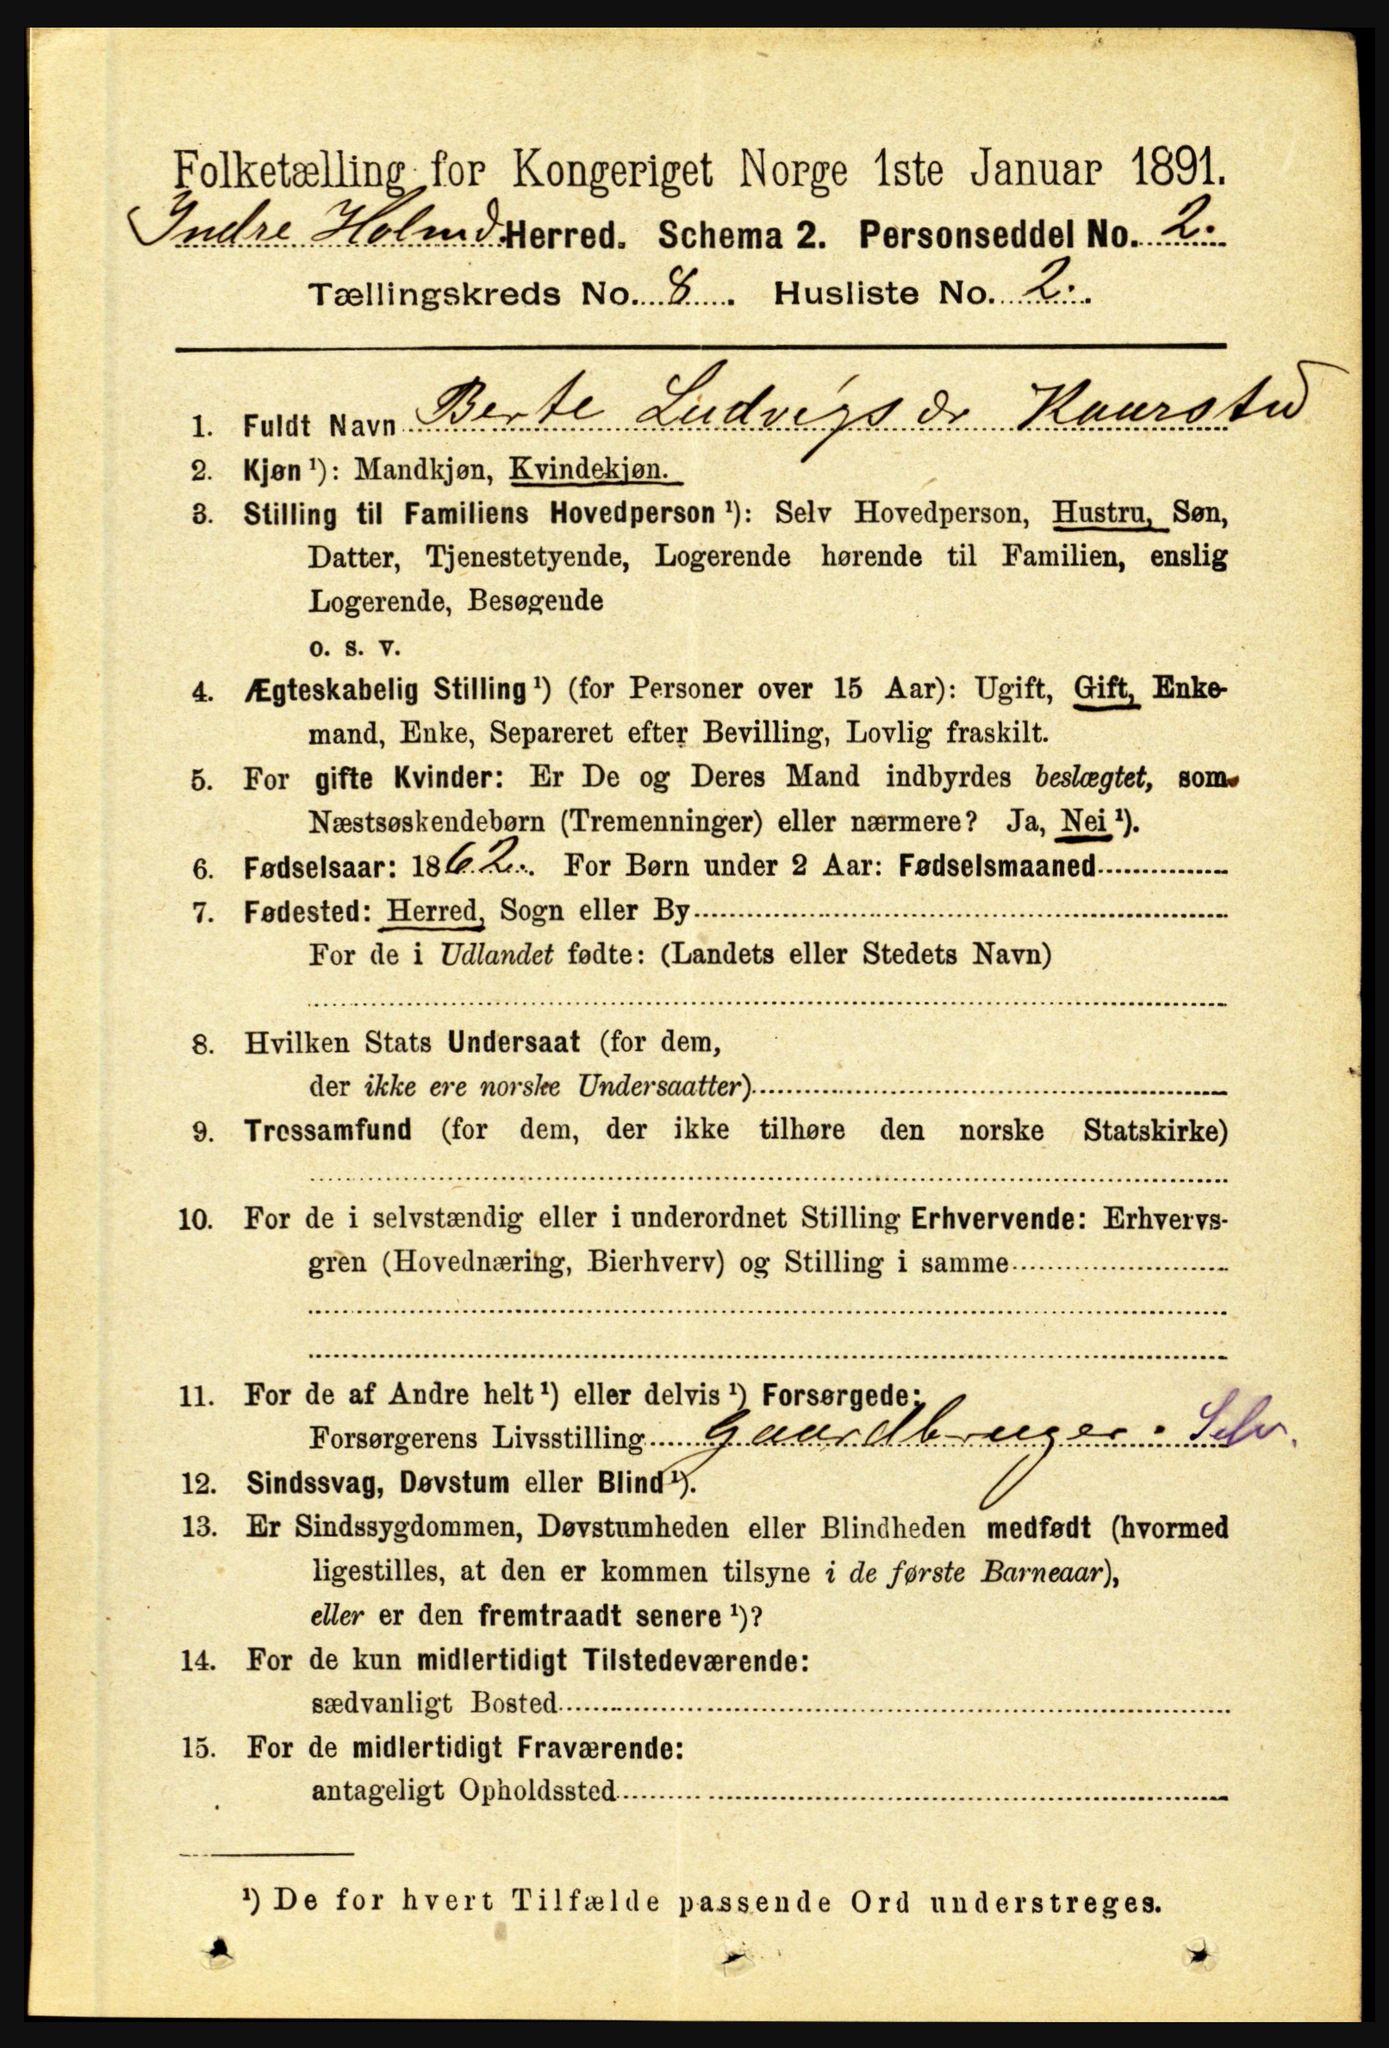 Folketælling for Kongeriget Norge 1ste Januar 1891.
Indre Holmd. Herred. Schema 2. Personseddel No. 2.
Tællingskreds No. 8. Husliste No. 2.
1. Fuldt Navn Berte Ludvigsdr Kaarstad
2. Kjøn ¹): Mandkjøn, Kvindekjøn.
3. Stilling til Familiens Hovedperson ¹): Selv Hovedperson, Hustru, Søn,
Datter, Tjenestetyende, Logerende hørende til Familien, enslig
Logerende, Besøgende
o. s. v.
4. Ægteskabelig Stilling ¹) (for Personer over 15 Aar): Ugift, Gift, Enke-
mand, Enke, Separeret efter Bevilling, Lovlig fraskilt.
5. For gifte Kvinder: Er De og Deres Mand indbyrdes beslægtet, som
Næstsøskendebørn (Tremenninger) eller nærmere? Ja, Nei ¹).
6. Fødselsaar: 1862. For Børn under 2 Aar: Fødselsmaaned
7. Fødested: Herred, Sogn eller By
For de i Udlandet fødte: (Landets eller Stedets Navn)
8. Hvilken Stats Undersaat (for dem,
der ikke ere norske Undersaatter)
9. Trossamfund (for dem, der ikke tilhøre den norske Statskirke)
10. For de i selvstændig eller i underordnet Stilling Erhvervende: Erhvervs-
gren (Hovednæring, Bierhverv) og Stilling i samme
11. For de af Andre helt ¹) eller delvis ¹) Forsørgede:
Forsørgerens Livsstilling Gaardbruger. Selv.
12. Sindssvag, Døvstum eller Blind ¹).
13. Er Sindssygdommen, Døvstumheden eller Blindheden medfødt (hvormed
ligestilles, at den er kommen tilsyne i de første Barneaar),
eller er den fremtraadt senere ¹)?
14. For de kun midlertidigt Tilstedeværende:
sædvanligt Bosted
15. For de midlertidigt Fraværende:
antageligt Opholdssted
¹) De for hvert Tilfælde passende Ord understreges.